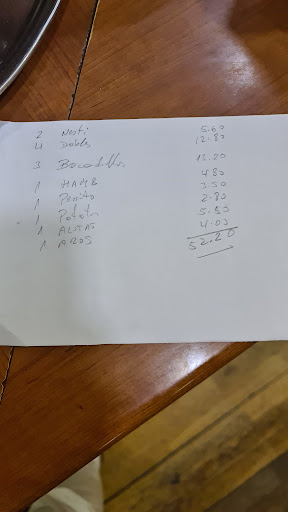 2 Nesti 5.60
4 Dobles 12.80
3 Bocadillos 13.20
1 HAMB 4.80
1 Perrito 3.50
1 Patata 2.80
1 ALITAS 5.50
1 AROS 4.00
52.20